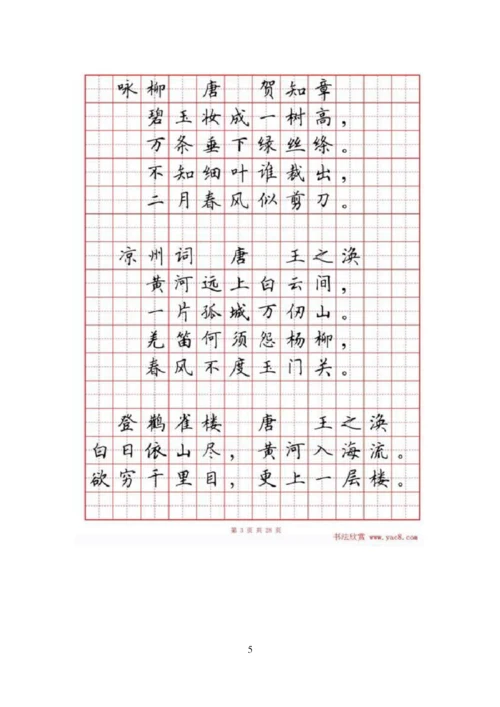 咏柳 唐 贺知章
碧玉妆成一树高，
万条垂下绿丝绦。
不知细叶谁裁出，
二月春风似剪刀。
凉州词 唐 王之涣
黄河远上白云间，
一片孤城万仞山。
羌笛何须怨杨柳，
春风不度玉门关。
登鹳雀楼 唐 王之涣
白日依山尽，黄河入海流。
欲穷千里目，更上一层楼。
第 3 页 共 28 页
书法欣赏 www.yac8.com
5